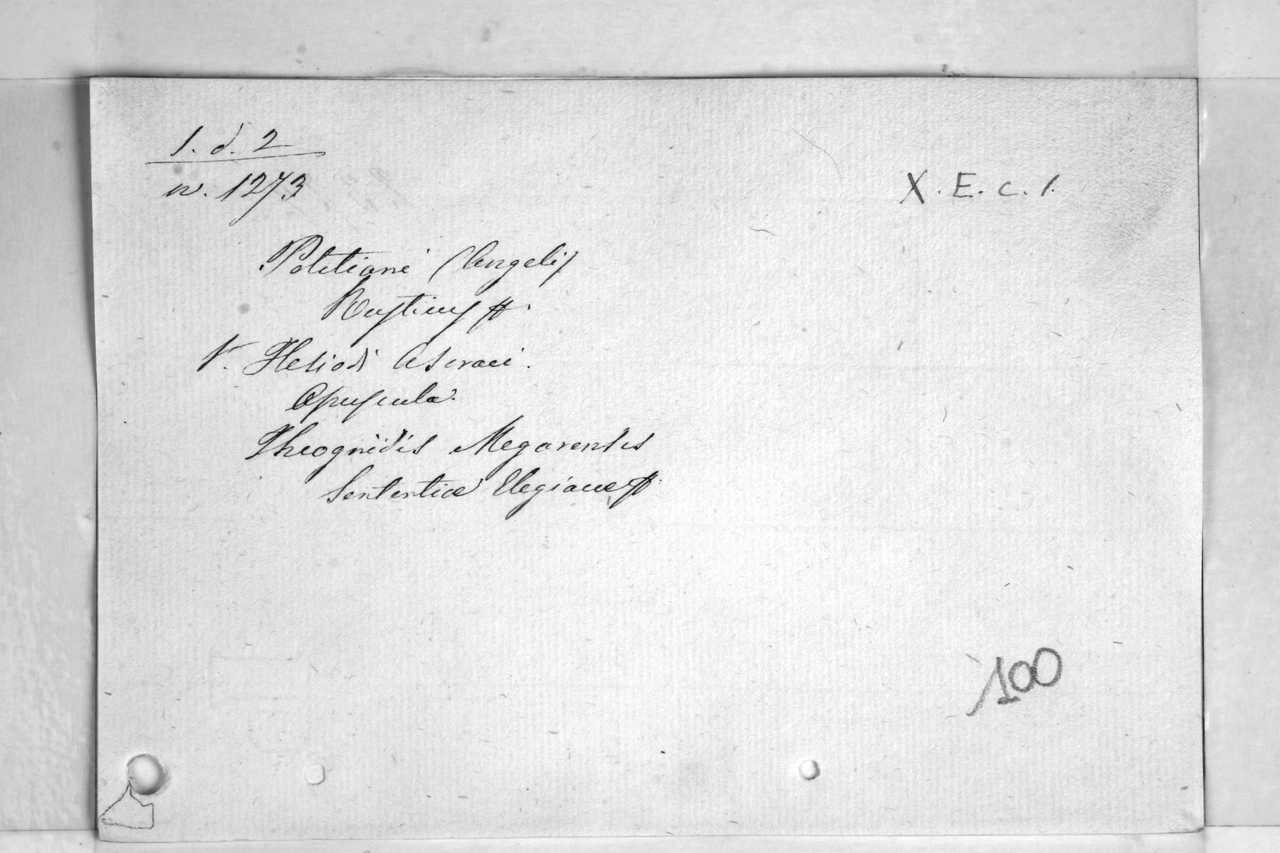 1. d. 2
n. 1273
X. E. c. 1.
Politiani (Angeli)
Rusticus
V. Hesiodi Ascraei.
Opuscula.
Theognidis Megarensis
Sententiae Elegiacae
100